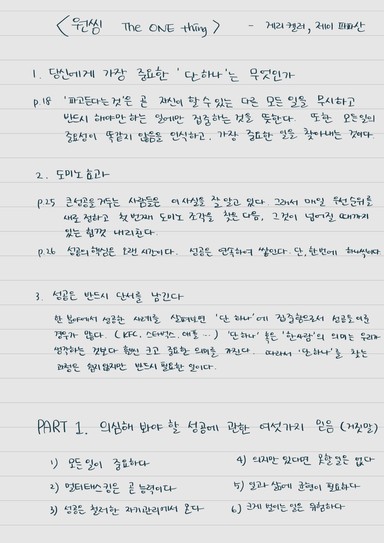 <원씽 The ONE thing> - 게리 켈러, 제이 파파산
1. 당신에게 가장 중요한 '단 하나'는 무엇인가
p.18 '파고든다는 것'은 곧 자신이 할 수 있는 다른 모든 일을 무시하고
반드시 해야만 하는 일에만 집중하는 것을 뜻한다. 또한 모든 일의
중요성이 똑같지 않음을 인식하고, 가장 중요한 일을 찾아내는 것이다.
2. 도미노 효과
p.25 큰 성공을 거두는 사람들은 이 사실을 잘 알고 있다. 그래서 매일 우선순위를
새로 정하고 첫 번째 도미노 조각을 찾은 다음, 그것이 넘어질 때까지
있는 힘껏 내리친다.
p.26 성공의 핵심은 오랜 시간이다. 성공은 연속하여 쌓인다. 단, 한 번에 하나씩이다.
3. 성공은 반드시 단서를 남긴다
한 분야에서 성공한 사례를 살펴보면 '단 하나'에 집중함으로써 성공을 이룬
경우가 많다. (KFC, 스타벅스, 애플 …) '단 하나' 혹은 '한 사람'의 의미는 우리가
생각하는 것보다 훨씬 크고 중요한 의미를 가진다. 따라서 '단 하나'를 찾는
과정은 쉽지 않지만 반드시 필요한 일이다.
PART 1. 의심해 봐야 할 성공에 관한 여섯가지 믿음 (거짓말)
1) 모든 일이 중요하다
2) 멀티태스킹은 곧 능력이다
3) 성공은 철저한 자기관리에서 온다
4) 의지만 있다면 못할 일은 없다
5) 일과 삶에 균형이 필요하다
6) 크게 벌이는 일은 위험하다